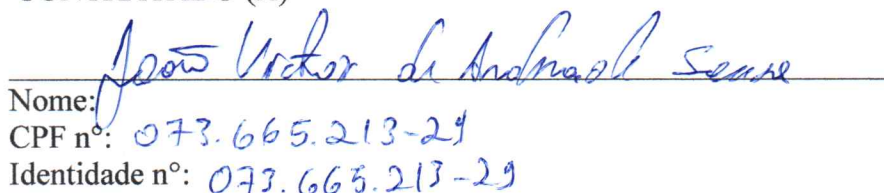 João Victor de Andrade Sousa
Nome:
CPF nº: 073.665.213-29
Identidade nº: 073.665.213-29